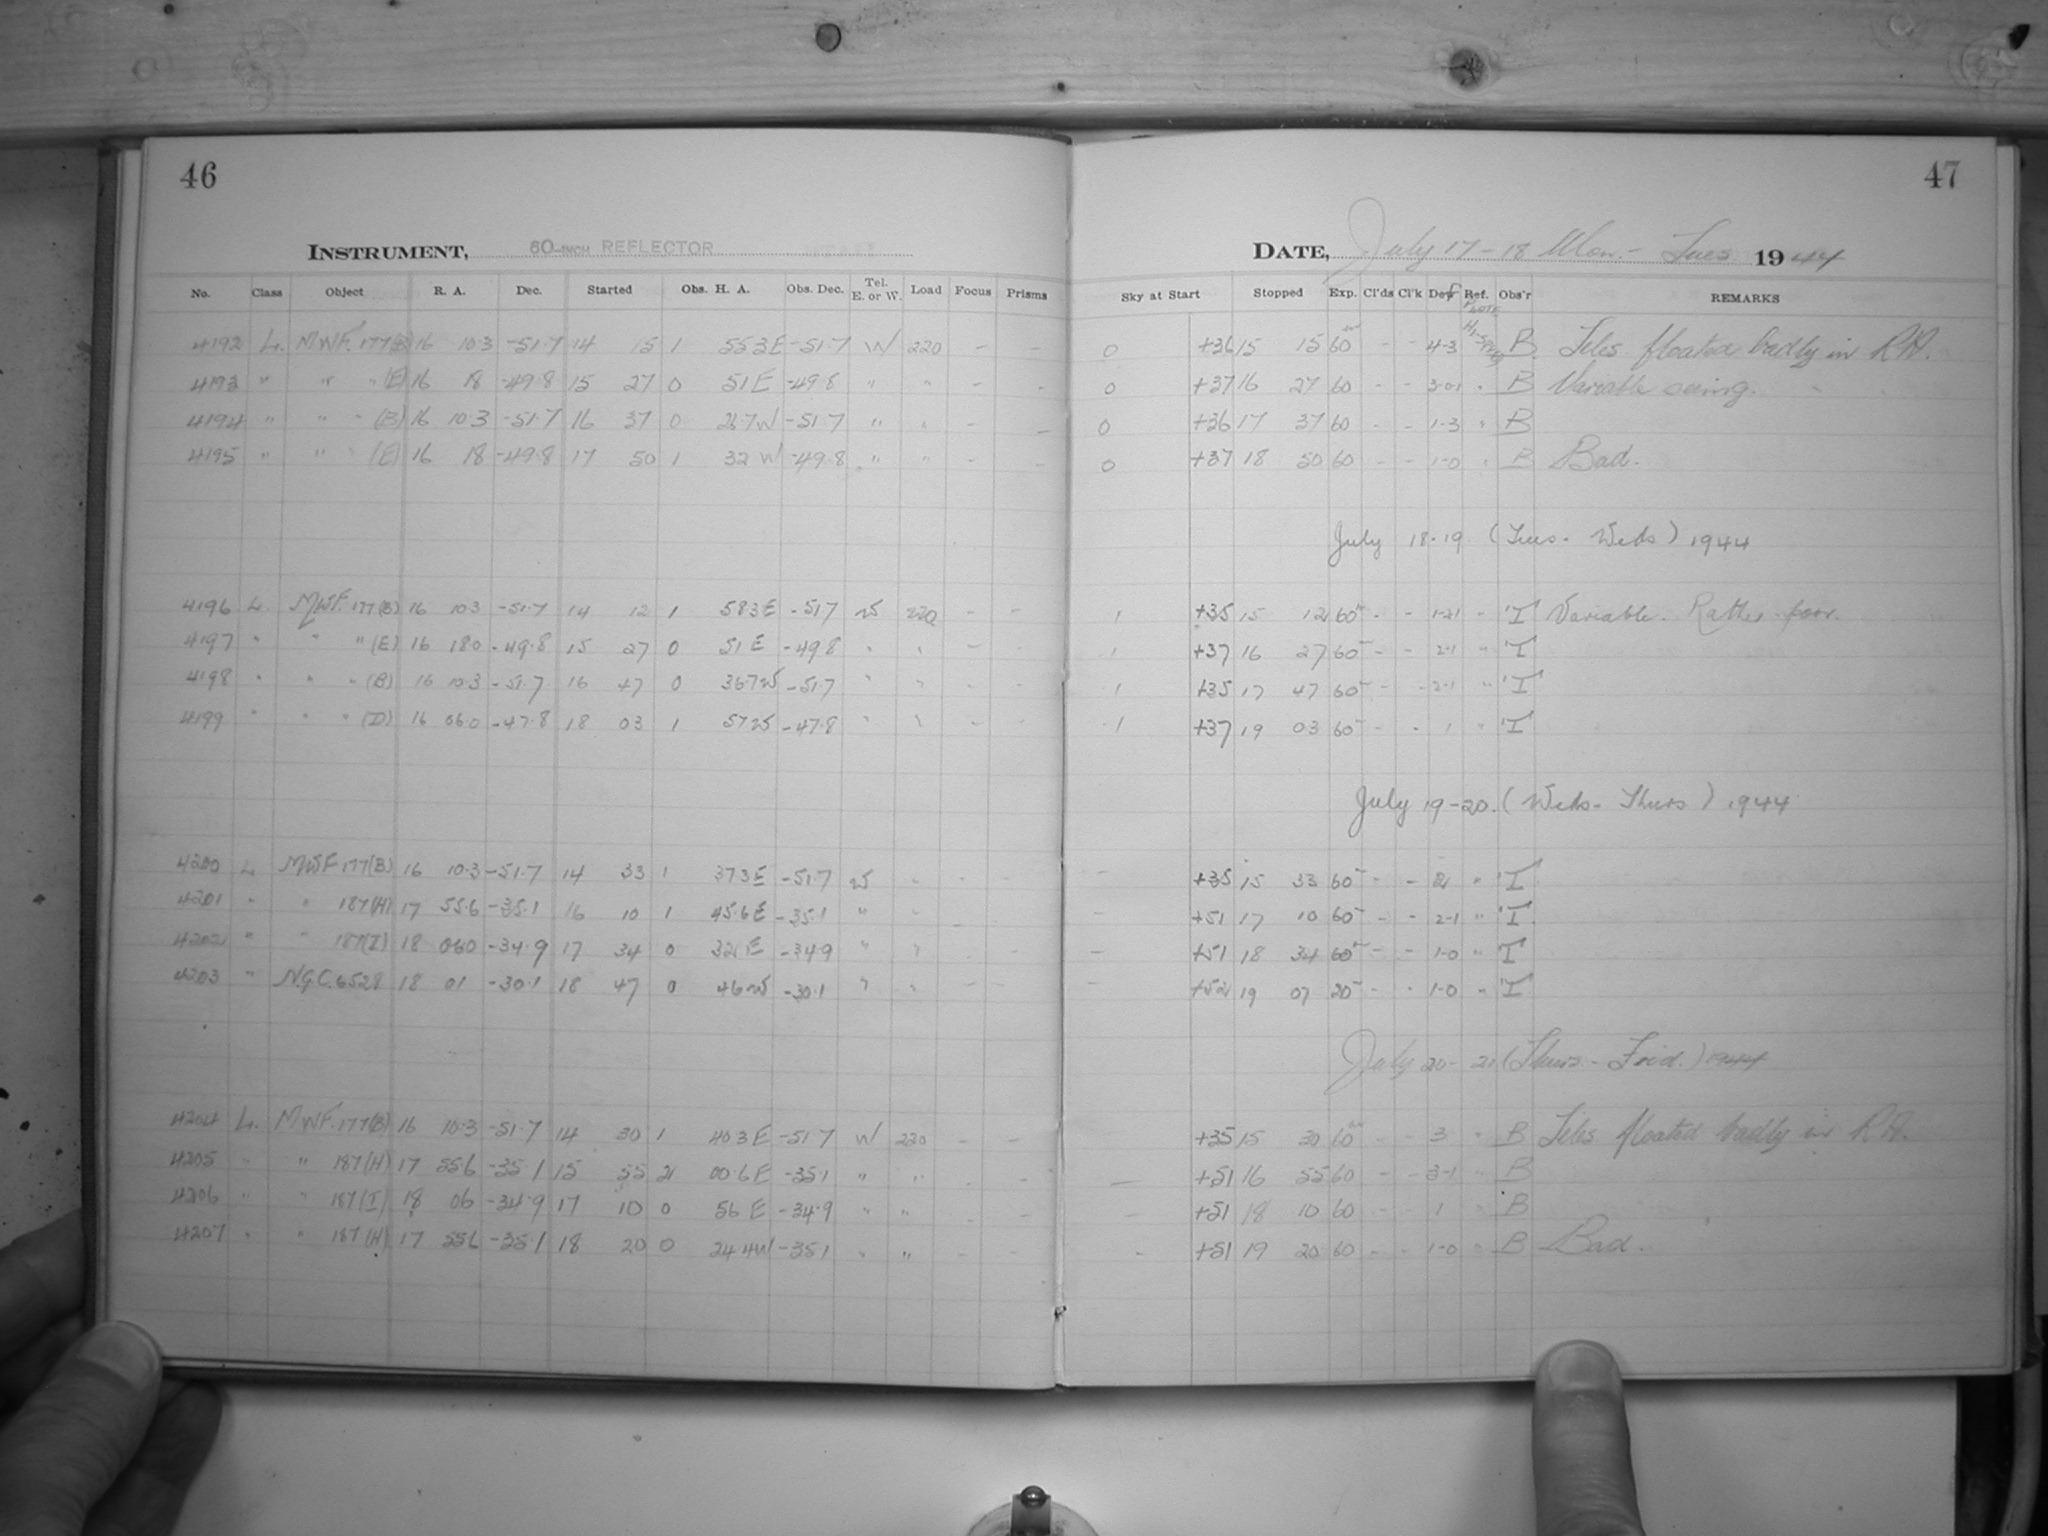 46
INSTRUMENT, 60-INCH REFLECTOR
No. Class Object R. A. Dec. Started Obs. H. A. Obs. Dec. Tel. E. or W. Load Focus Prisms
4192 L. MWF. 177(B) 16 10.3 -51.7 14 15 1 55.3E -51.7 W 220 - -
4193 " " " (E) 16 18 -49.8 15 27 0 51 E -49.8 " "
4194 " " " (B) 16 10.3 -51.7 16 37 0 26.7W -51.7 " " - -
4195 " " " (E) 16 18 -49.8 17 50 1 32 W -49.8 " " - -
4196 L. MWF. 177(B) 16 10.3 -51.7 14 12 1 583E -51.7 W 220 - -
4197 " " " (E) 16 18.0 -49.8 15 27 0 51 E -49.8 " " - -
4198 " " " (B) 16 10.3 -51.7 16 47 0 36.7W -51.7 " " - -
4199 " " " (D) 16 06.0 -47.8 18 03 1 57W -47.8 " " - -
4200 L MWF 177(B) 16 10.3 -51.7 14 33 1 373E -51.7 W - - -
4201 " " 187(H) 17 55.6 -35.1 16 10 1 45.6E -35.1 " " - -
4202 " " 187(I) 18 060 -34.9 17 34 0 32 E -34.9 " " - -
4203 " N.G.C. 6528 18 01 -30.1 18 47 0 46W -30.1 " " - -
4204 L. MWF. 177(B) 16 10.3 -51.7 14 30 1 403E -51.7 W 220 - -
4205 " " 187(H) 17 55.6 -35.1 15 55 2 00.6E -35.1 " " - -
4206 " " 187(I) 18 06 -34.9 17 10 0 56 E -34.9 " " - -
4207 " " 187(H) 17 556 -35.1 18 20 0 24.4W -35.1 " " - -
47
DATE, July 17-18 Mon. - Tues 1944
Sky at Start Stopped Exp. Cl'ds Cl'k Def Ref. Obs'r REMARKS
0 +36 15 15 60m - - 4-3 B Teles. floated badly in RA.
0 +37 16 27 60 - - 3-01 " B Variable seeing.
0 +36 17 37 60 - - 1-3 " B
0 +37 18 50 60 - - 1-0 " B Bad.
July 18-19 (Tues - Weds) 1944
1 +35 15 12 60m - - 1-21 " I Variable. Rather poor.
1 +37 16 27 60 - - 2-1 " I
1 +35 17 47 60 - - 2-1 " I
1 +37 19 03 60 - - 1 " I
July 19-20. (Weds - Thurs) 1944
- +35 15 33 60 - - 2 " I
- +51 17 10 60 - - 2-1 " I
- +51 18 34 60 - - 1-0 " I
- +52 19 07 20 - - 1-0 " I
July 20-21 (Thurs - Frid.) 1944
+35 15 30 60m - - 3 " B Teles floated badly in RA.
- +51 16 55 60 - - 3-1 " B
- +51 18 10 60 - - 1 " B
- +51 19 20 60 - - 1-0 " B Bad.